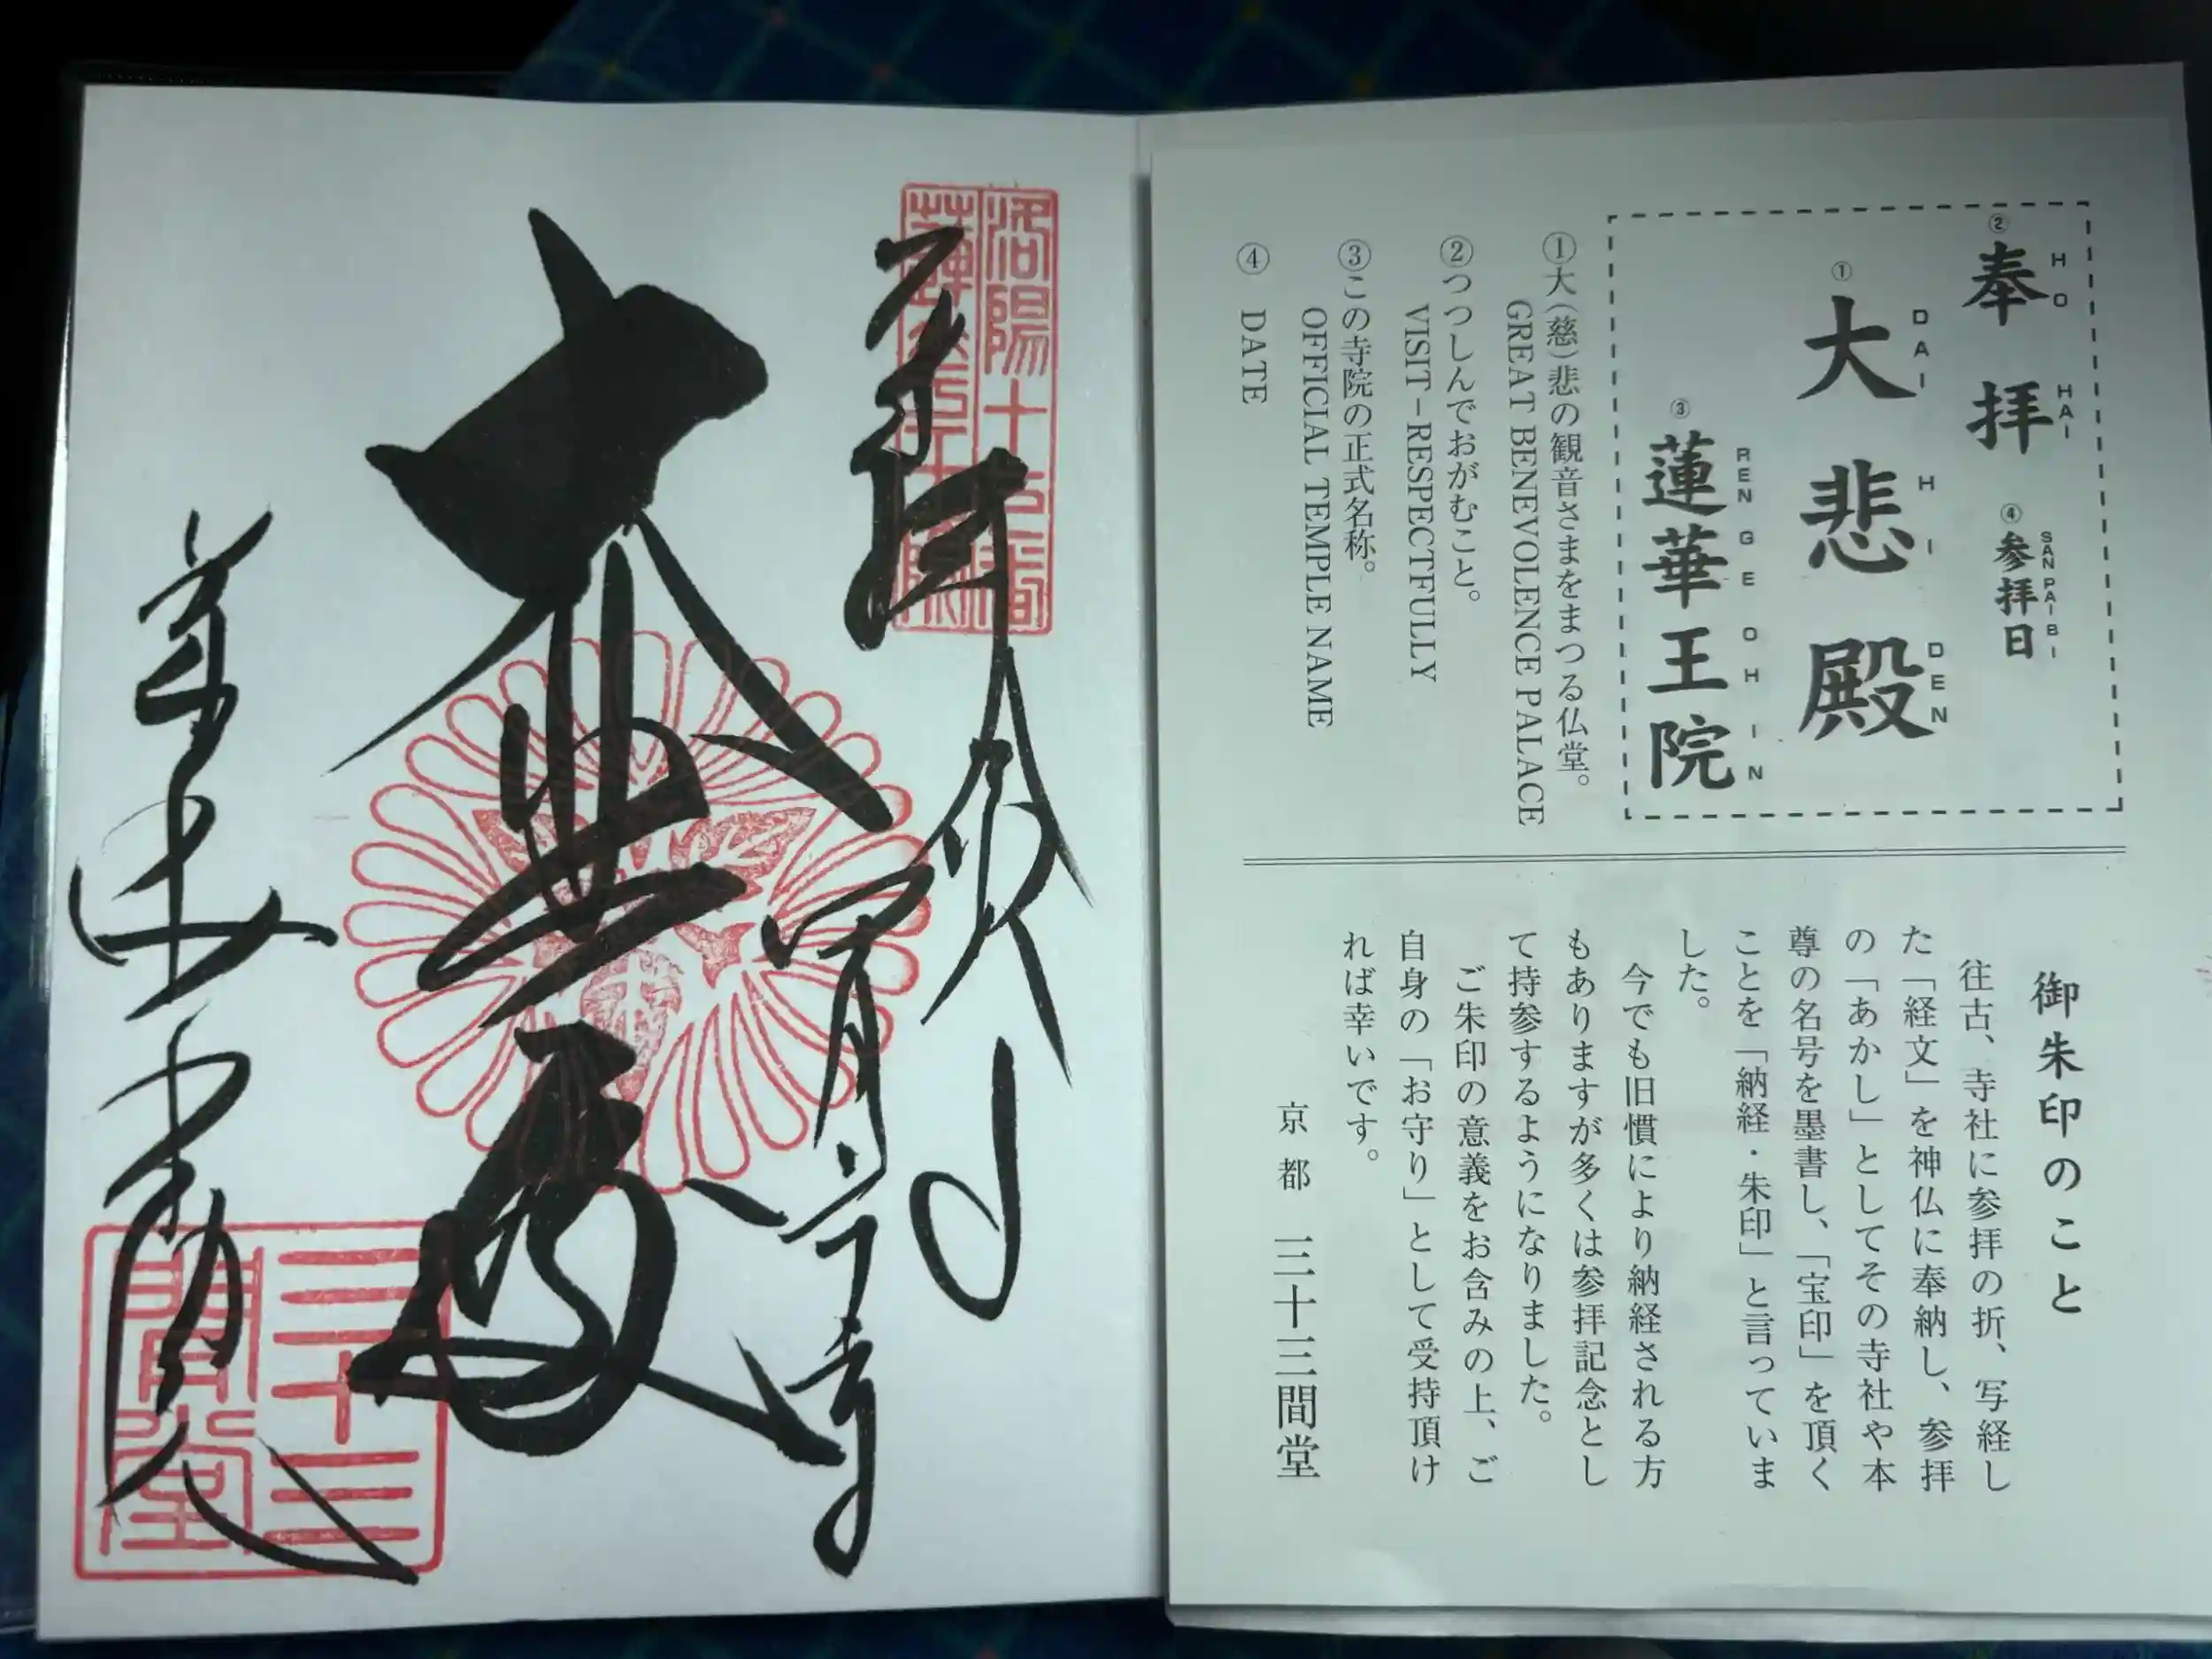 ② 奉拝 HO HAI
④ 参拝日 SAN PAI BI
① 大悲殿 DAI HI DEN
③ 蓮華王院 REN GE OH IN
①大(慈)悲の観音さまをまつる仏堂。
GREAT BENEVOLENCE PALACE
②つつしんでおがむこと。
VISIT–RESPECTFULLY
③この寺院の正式名称。
OFFICIAL TEMPLE NAME
④ DATE
御朱印のこと
往古、寺社に参拝の折、写経し
た「経文」を神仏に奉納し、参拝
の「あかし」としてその寺社や本
尊の名号を墨書し、「宝印」を頂く
ことを「納経・朱印」と言っていま
した。
今でも旧慣により納経される方
もありますが多くは参拝記念とし
て持参するようになりました。
ご朱印の意義をお含みの上、ご
自身の「お守り」として受持頂け
れば幸いです。
京都 三十三間堂
洛陽十七番
大悲殿
三十三
間堂